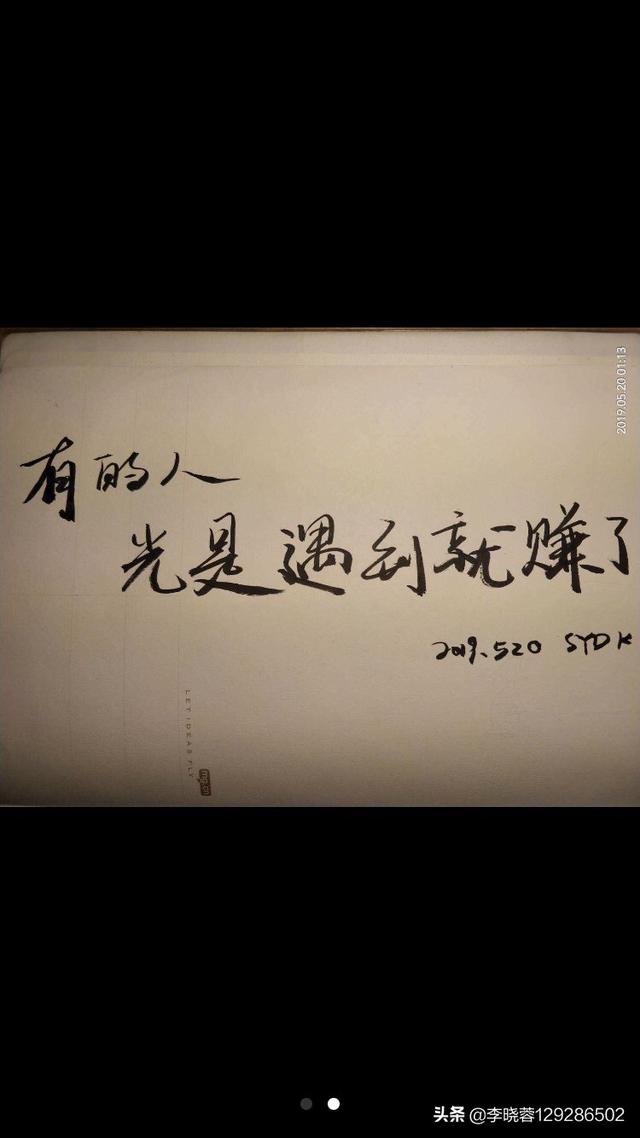 2019.05.20 01:13
有的人
光是遇到就赚了
2019.520 SYDK
LET IDEAS FLY
mp.cn
头条 @李晓蓉129286502